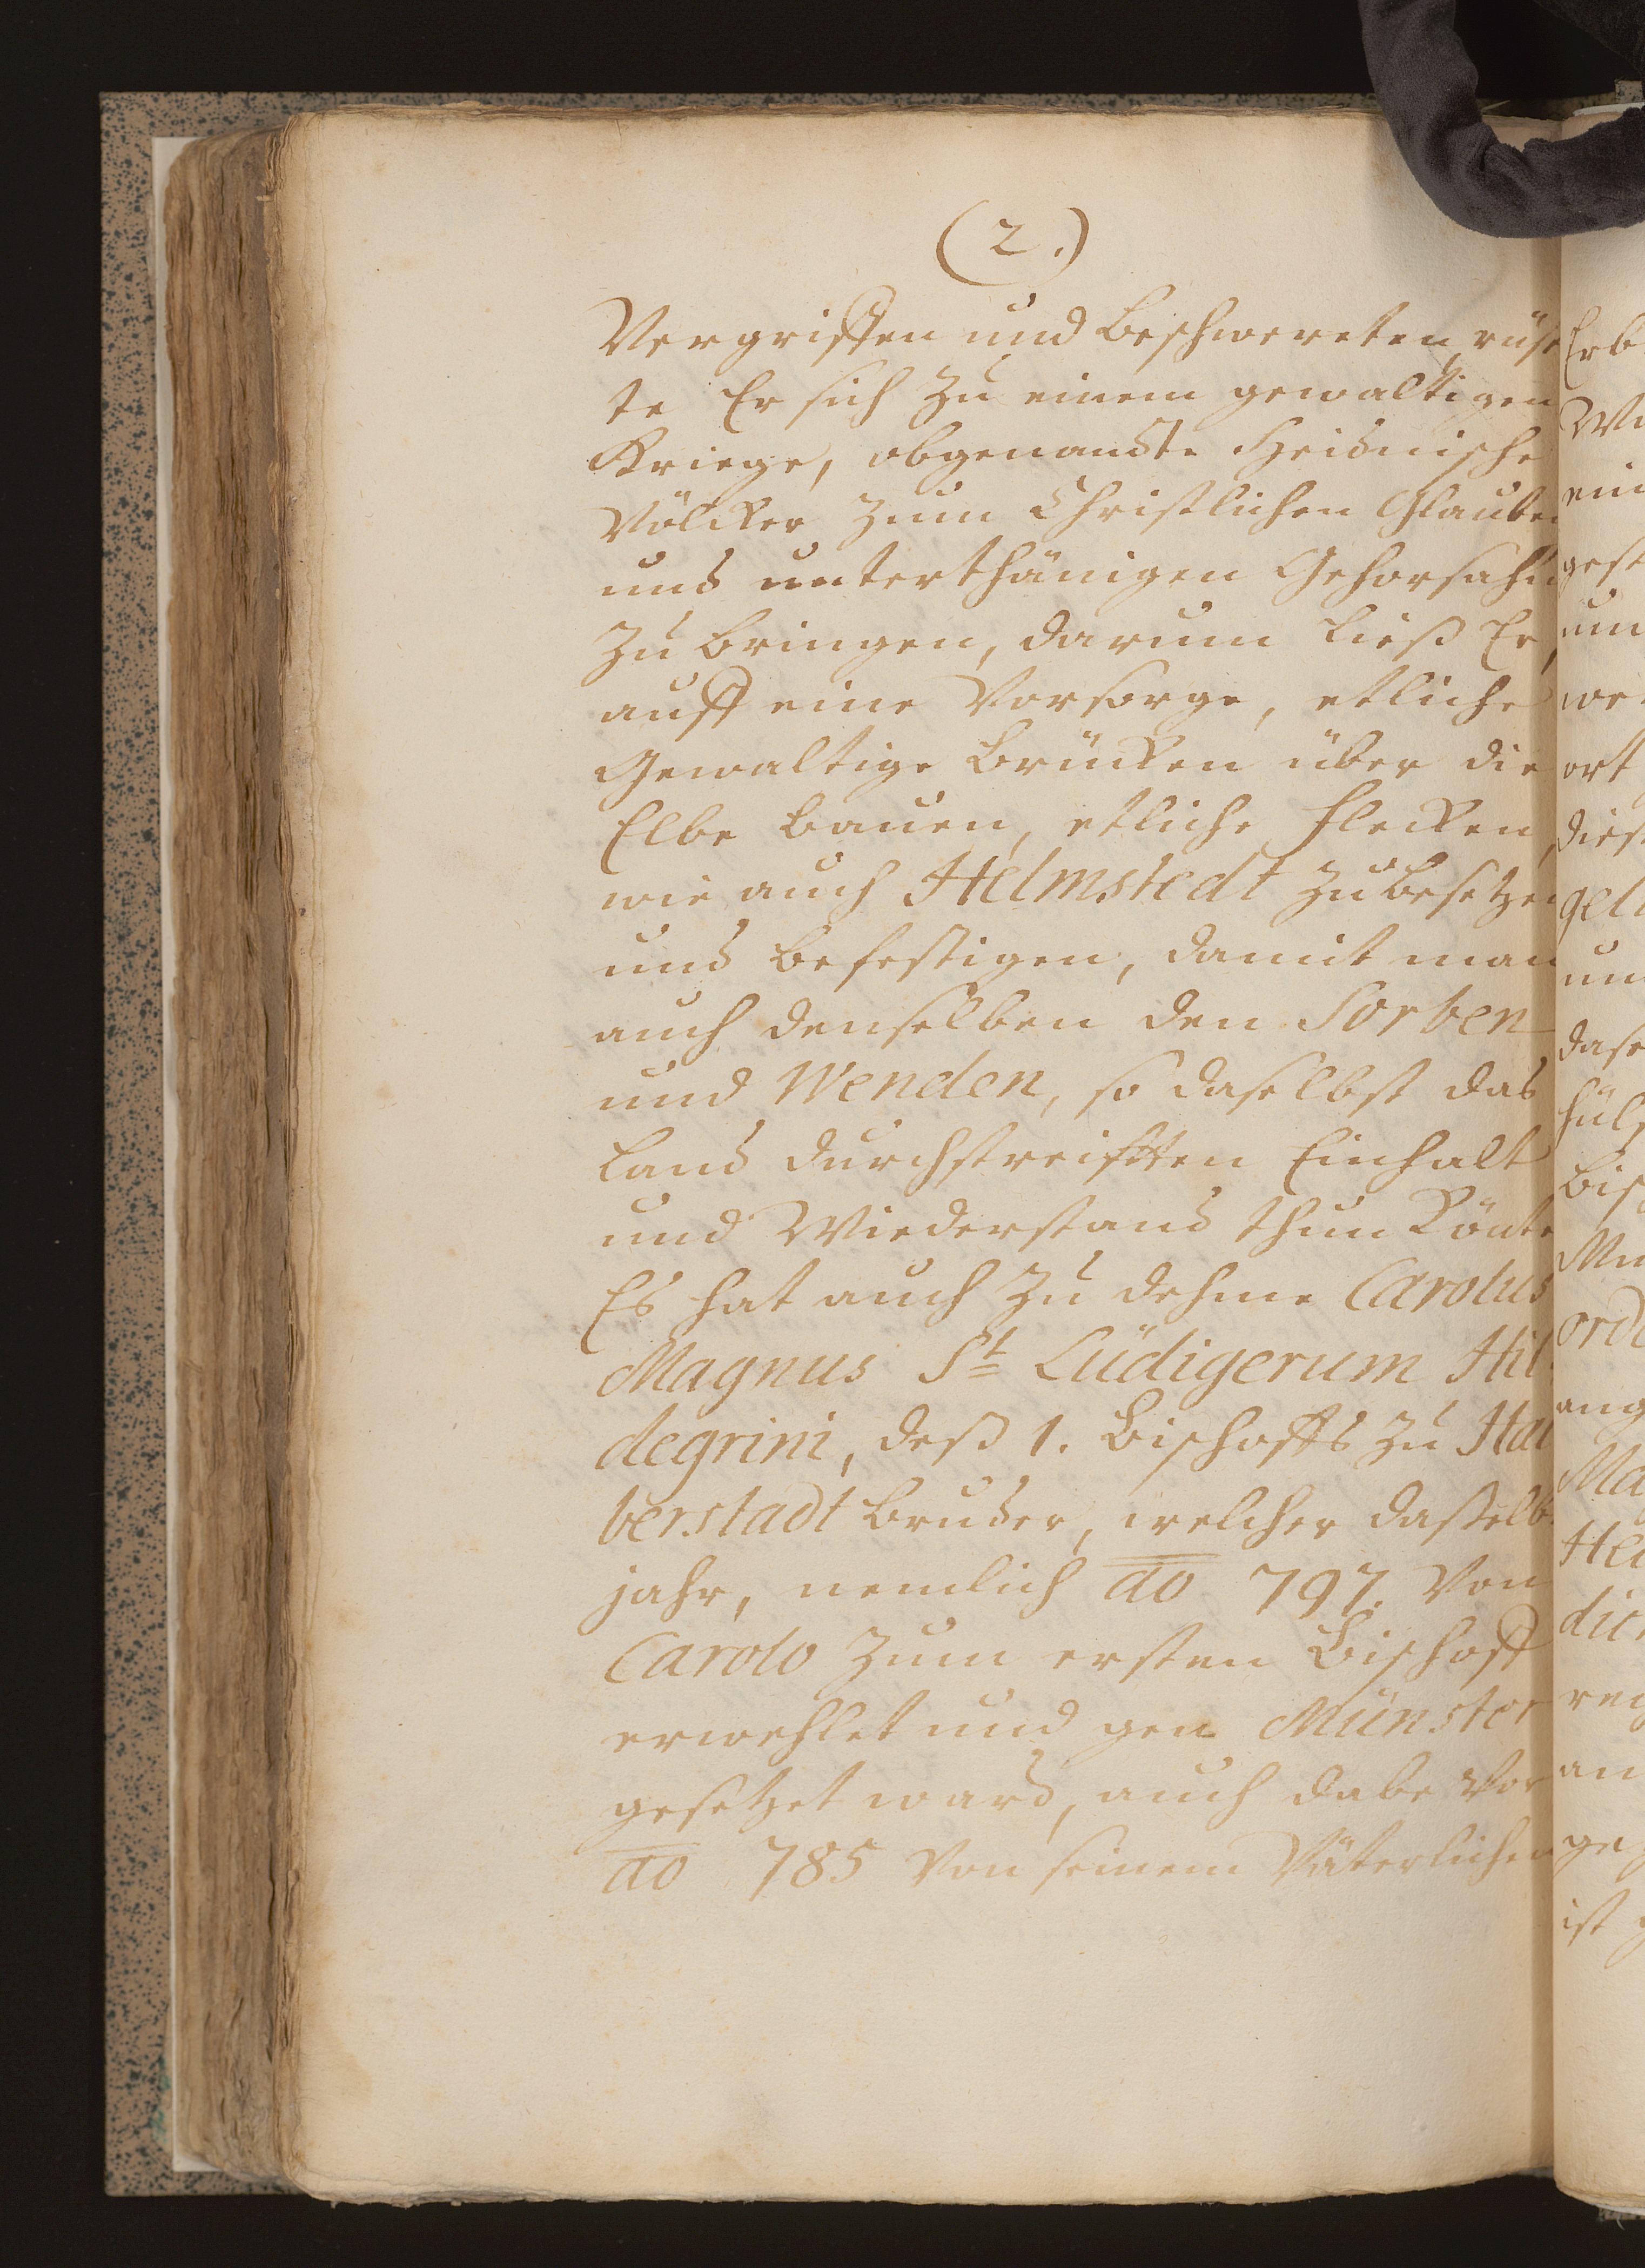 (2.)
Vergriffen und beschwereten, rüs
te Er sich zu einem gewaltigen
Kriege, obgenandte Heidnische
Völcker zum Christlichen Glauben
und unterthänigen Gehorsahm
zu bringen, darum ließ Er,
auff eine Vorsorge, etliche
Gewaltige Brücken über die
Elbe bauen, etliche Flecken,
wie auch Helmstedt zu besetzen
und befestigen, damit man
auch denselben den Sorben
und Wenden, so daselbst das
Land durchstreifften Einhalt
und Wiederstand thun könte
Es hat auch zu dehme Carolus
Magnus St Lüdigerum Hil
degrini, deß 1. Bischoffs zu Hal
berstadt Bruder, welcher dasselb
jahr, nemlich ao 797. von
Carolo zum ersten Bischoff
erwehlet und gen Münster
gesetzet ward, auch dabevor
ao 785 von seinem Väterlichen
Erb
ein
gest
um
ort
dies
gel
un
das
hülf
Bis
ord
ang
Ma
Hel
an
ge
ist